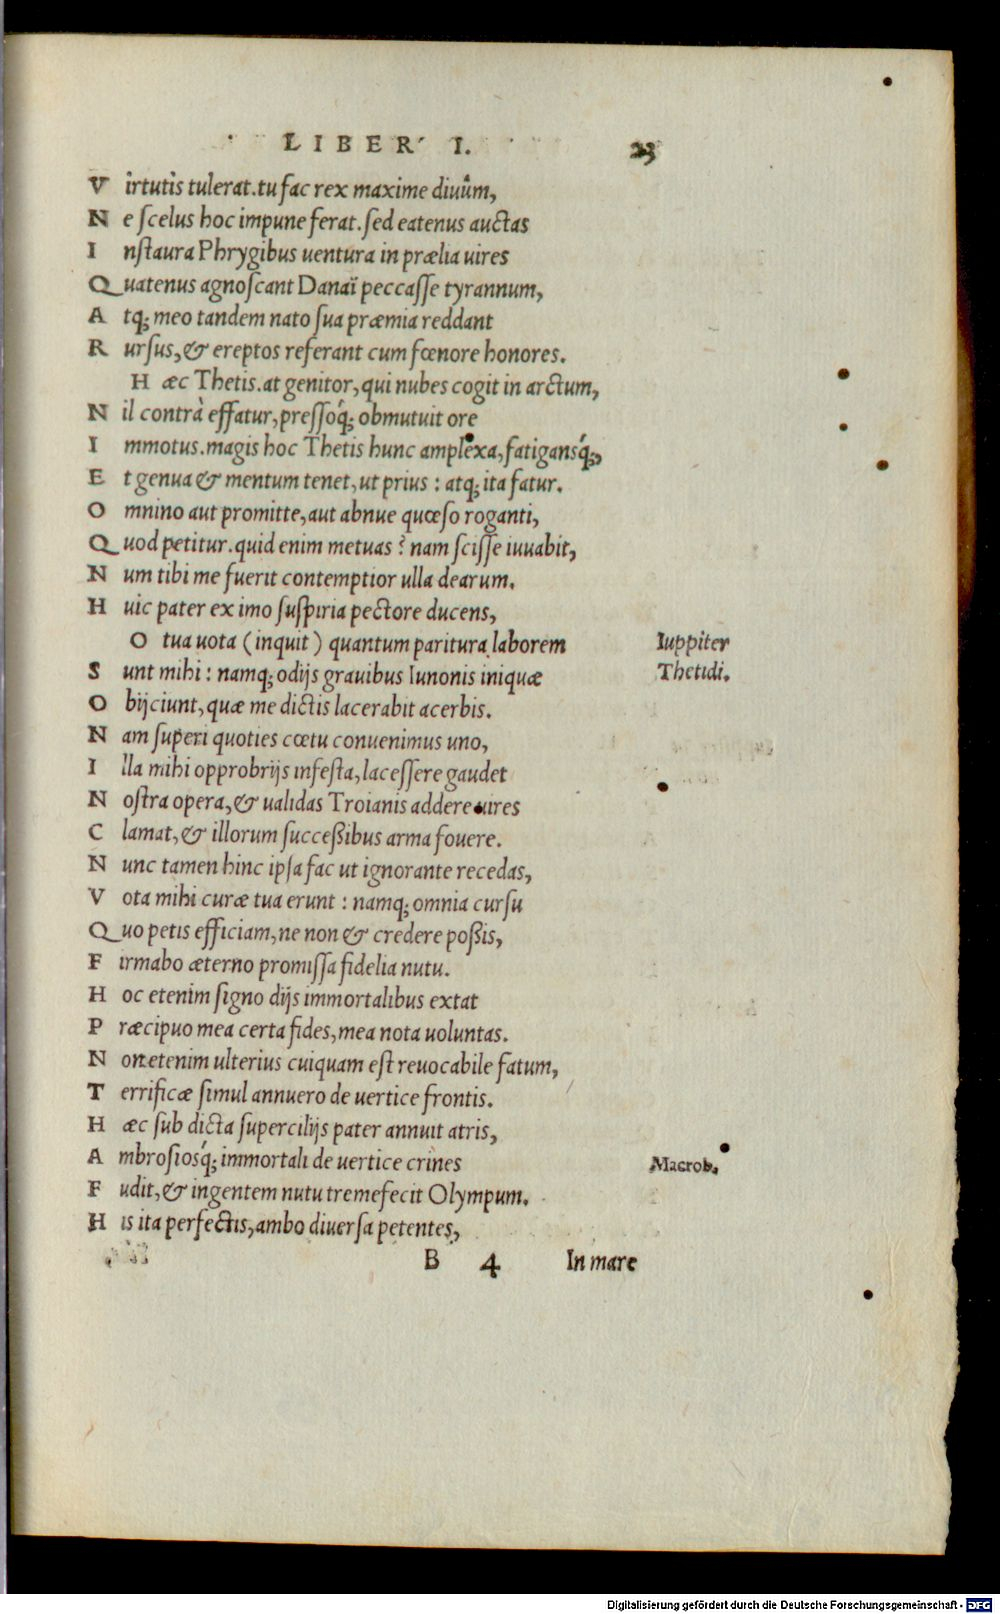 LIBER I. 23
Virtutis tulerat. tu fac rex maxime diuûm,
Ne scelus hoc impune ferat. sed eatenus auctas
Instaura Phrygibus uentura in prælia uires
Quatenus agnoscant Danaï peccasse tyrannum,
Atq; meo tandem nato sua præmia reddant
Rursus, & ereptos referant cum fœnore honores.
Hæc Thetis. at genitor, qui nubes cogit in arctum,
Nil contrà effatur, pressoq́; obmutuit ore
Immotus. magis hoc Thetis hunc amplexa, fatigansq́;,
Et genua & mentum tenet, ut prius : atq; ita fatur.
Omnino aut promitte, aut abnue quæso roganti,
Quod petitur. quid enim metuas? nam scisse iuuabit,
Num tibi me fuerit contemptior ulla dearum.
Huic pater ex imo suspiria pectore ducens,
O tua uota (inquit) quantum paritura laborem Iuppiter
Sunt mihi : namq; odijs grauibus Iunonis iniquæ Thetidi.
Obijciunt, quæ me dictis lacerabit acerbis.
Nam superi quoties cœtu conuenimus uno,
Illa mihi opprobrijs infesta, lacessere gaudet
Nostra opera, & ualidas Troianis addere uires
Clamat, & illorum succeßibus arma fouere.
Nunc tamen hinc ipsa fac ut ignorante recedas,
Vota mihi curæ tua erunt : namq; omnia cursu
Quo petis efficiam, ne non & credere poßis,
Firmabo æterno promissa fidelia nutu.
Hoc etenim signo dijs immortalibus extat
Præcipuo mea certa fides, mea nota uoluntas.
Non etenim ulterius cuiquam est reuocabile fatum,
Terrificæ simul annuero de uertice frontis.
Hæc sub dicta supercilijs pater annuit atris,
Ambrosiosq́; immortali de uertice crines Macrob.
Fudit, & ingentem nutu tremefecit Olympum.
His ita perfectis, ambo diuersa petentes,
B 4 In mare
Digitalisierung gefördert durch die Deutsche Forschungsgemeinschaft - DFG